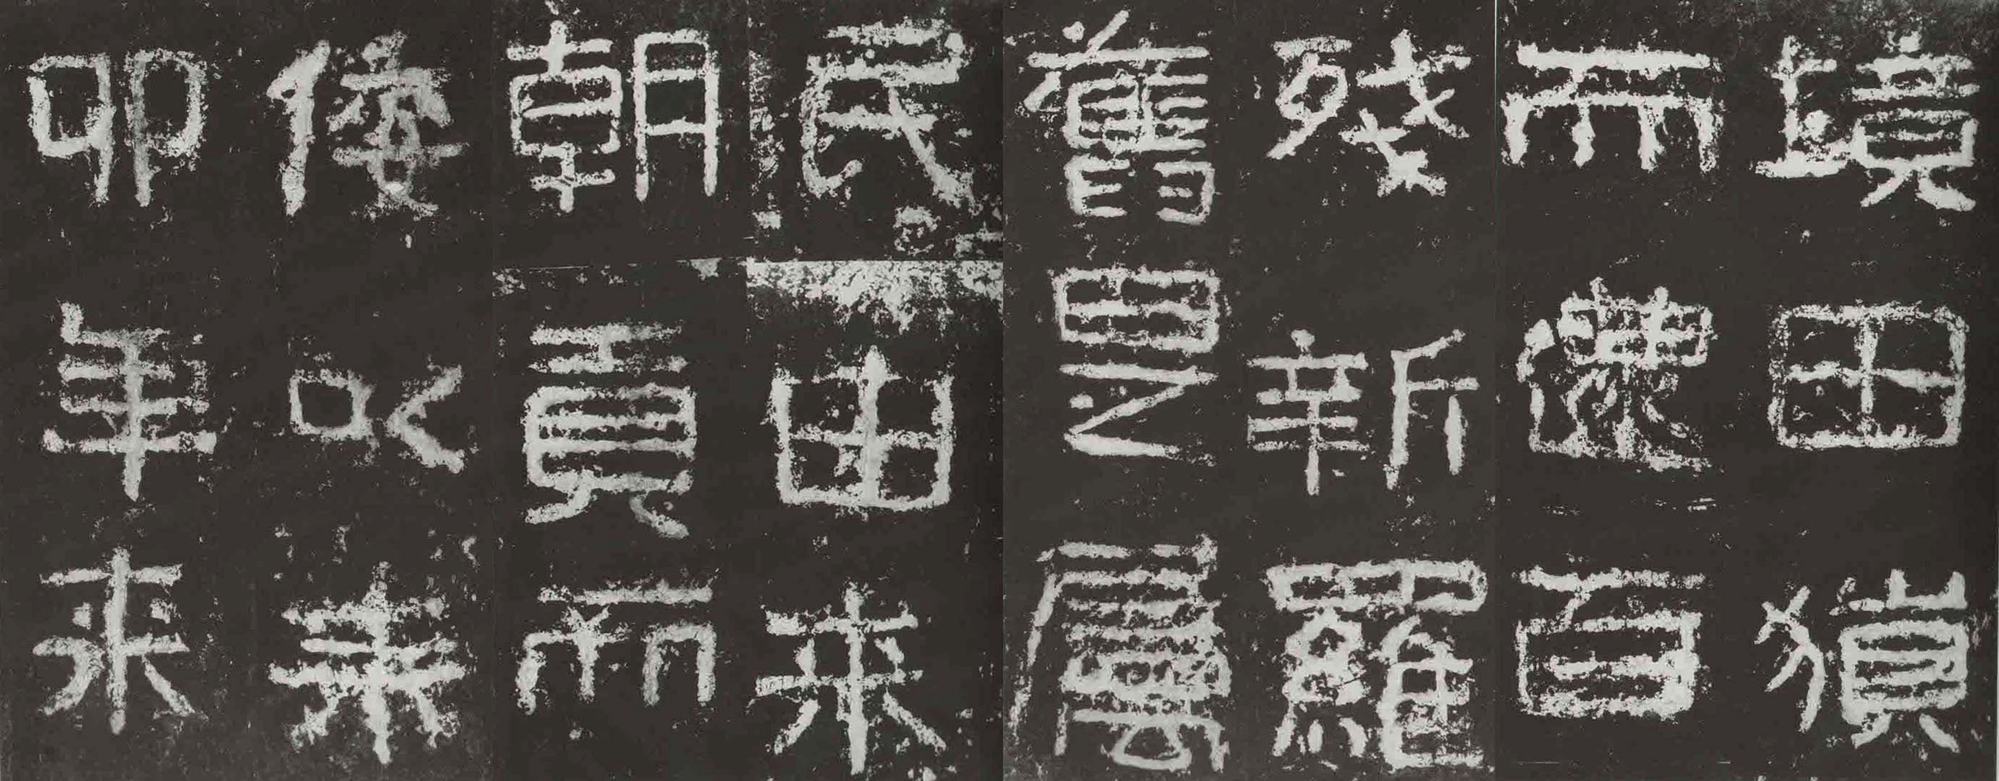 境田獵
而還百
殘新羅
舊是屬
民由來
朝貢而
倭以辛
卯年來